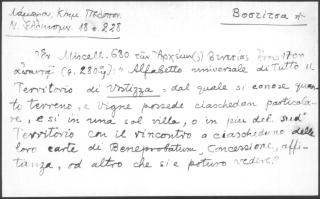 Λάμπρου, Κλημ Πελοπον.
Ν. Ἑλληνομν. 18 σ. 228
Βοστίτσα *
Ἐν Miscell. 680 τῶν Ἀρχείων(;) Βενετίας
(φ. 280ον): "Alfabetto universale di Tutto il
Territorio di Vostizza, dal quale si conose quan-
to terreno, e vigne possede ciaschedun particola-
re, e si in una sol villa, o in piu del sud°
Territorio con il rincontro a ciascheduno delle
loro carte di Beneprobatum, Concessione, affi-
tanza, od altro che si e potuto vedere."